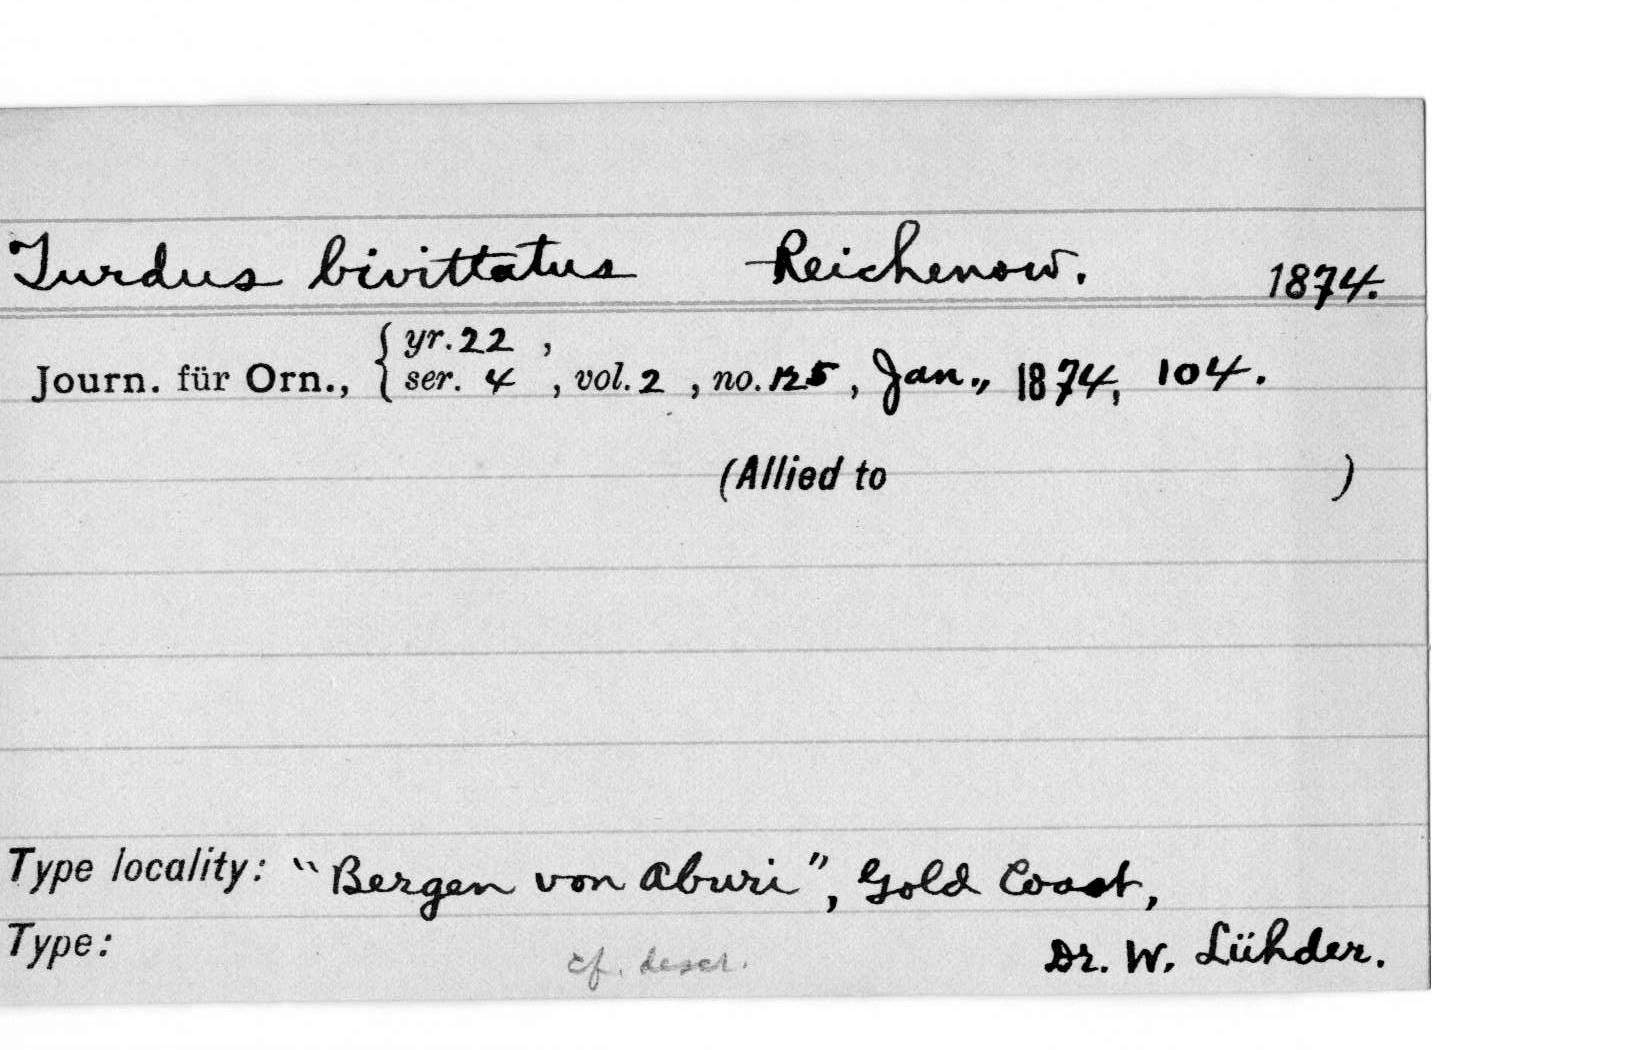 Turdus bivittatus Reichenow. 1874.
yr. 22 ,
Journ. für Orn., { ser. 4 , vol. 2 , no. 125 , Jan., 1874, 104.
(Allied to )
Type locality: "Bergen von Aburi", Gold Coast,
Type: cf. descr. Dr. W. Lühder.